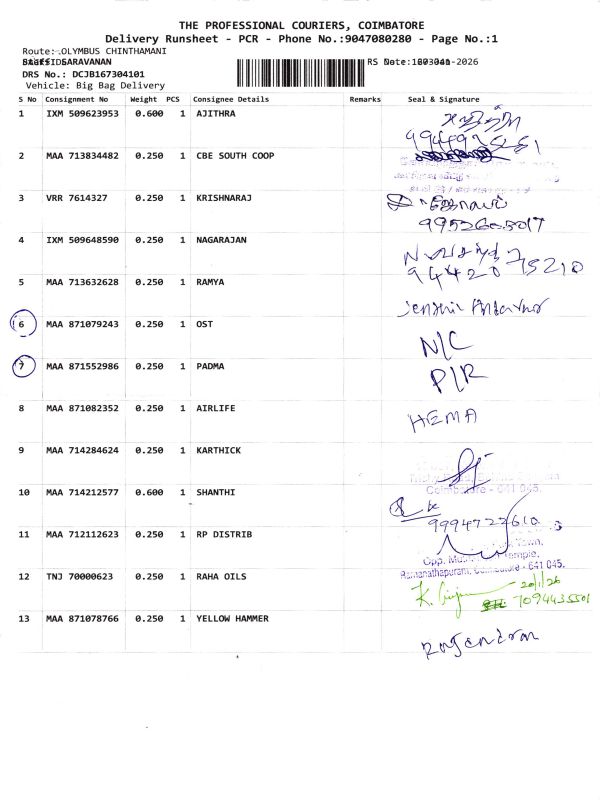 THE PROFESSIONAL COURIERS, COIMBATORE
Delivery Runsheet - PCR - Phone No.:9047080280 - Page No.:1
Route: OLYMBUS CHINTHAMANI
SARAVANAN
DRS No.: DCJB167304101
Vehicle: Big Bag Delivery
S No Consignment No Weight PCS Consignee Details Remarks Seal & Signature
1 IXM 509623953 0.600 1 AJITHRA
2 MAA 713834482 0.250 1 CBE SOUTH COOP
3 VRR 7614327 0.250 1 KRISHNARAJ
9952603017
4 IXM 509648590 0.250 1 NAGARAJAN
94420 75210
5 MAA 713632628 0.250 1 RAMYA
6 MAA 871079243 0.250 1 OST
N/C
7 MAA 871552986 0.250 1 PADMA
P/R
8 MAA 871082352 0.250 1 AIRLIFE
HEMA
9 MAA 714284624 0.250 1 KARTHICK
Coimbatore - 641 045.
10 MAA 714212577 0.600 1 SHANTHI
9994722610
11 MAA 712112623 0.250 1 RP DISTRIB
Ramanathapuram, Coimbatore - 641 045.
12 TNJ 70000623 0.250 1 RAHA OILS
20/1/26
7094435501
13 MAA 871078766 0.250 1 YELLOW HAMMER
Rajendran